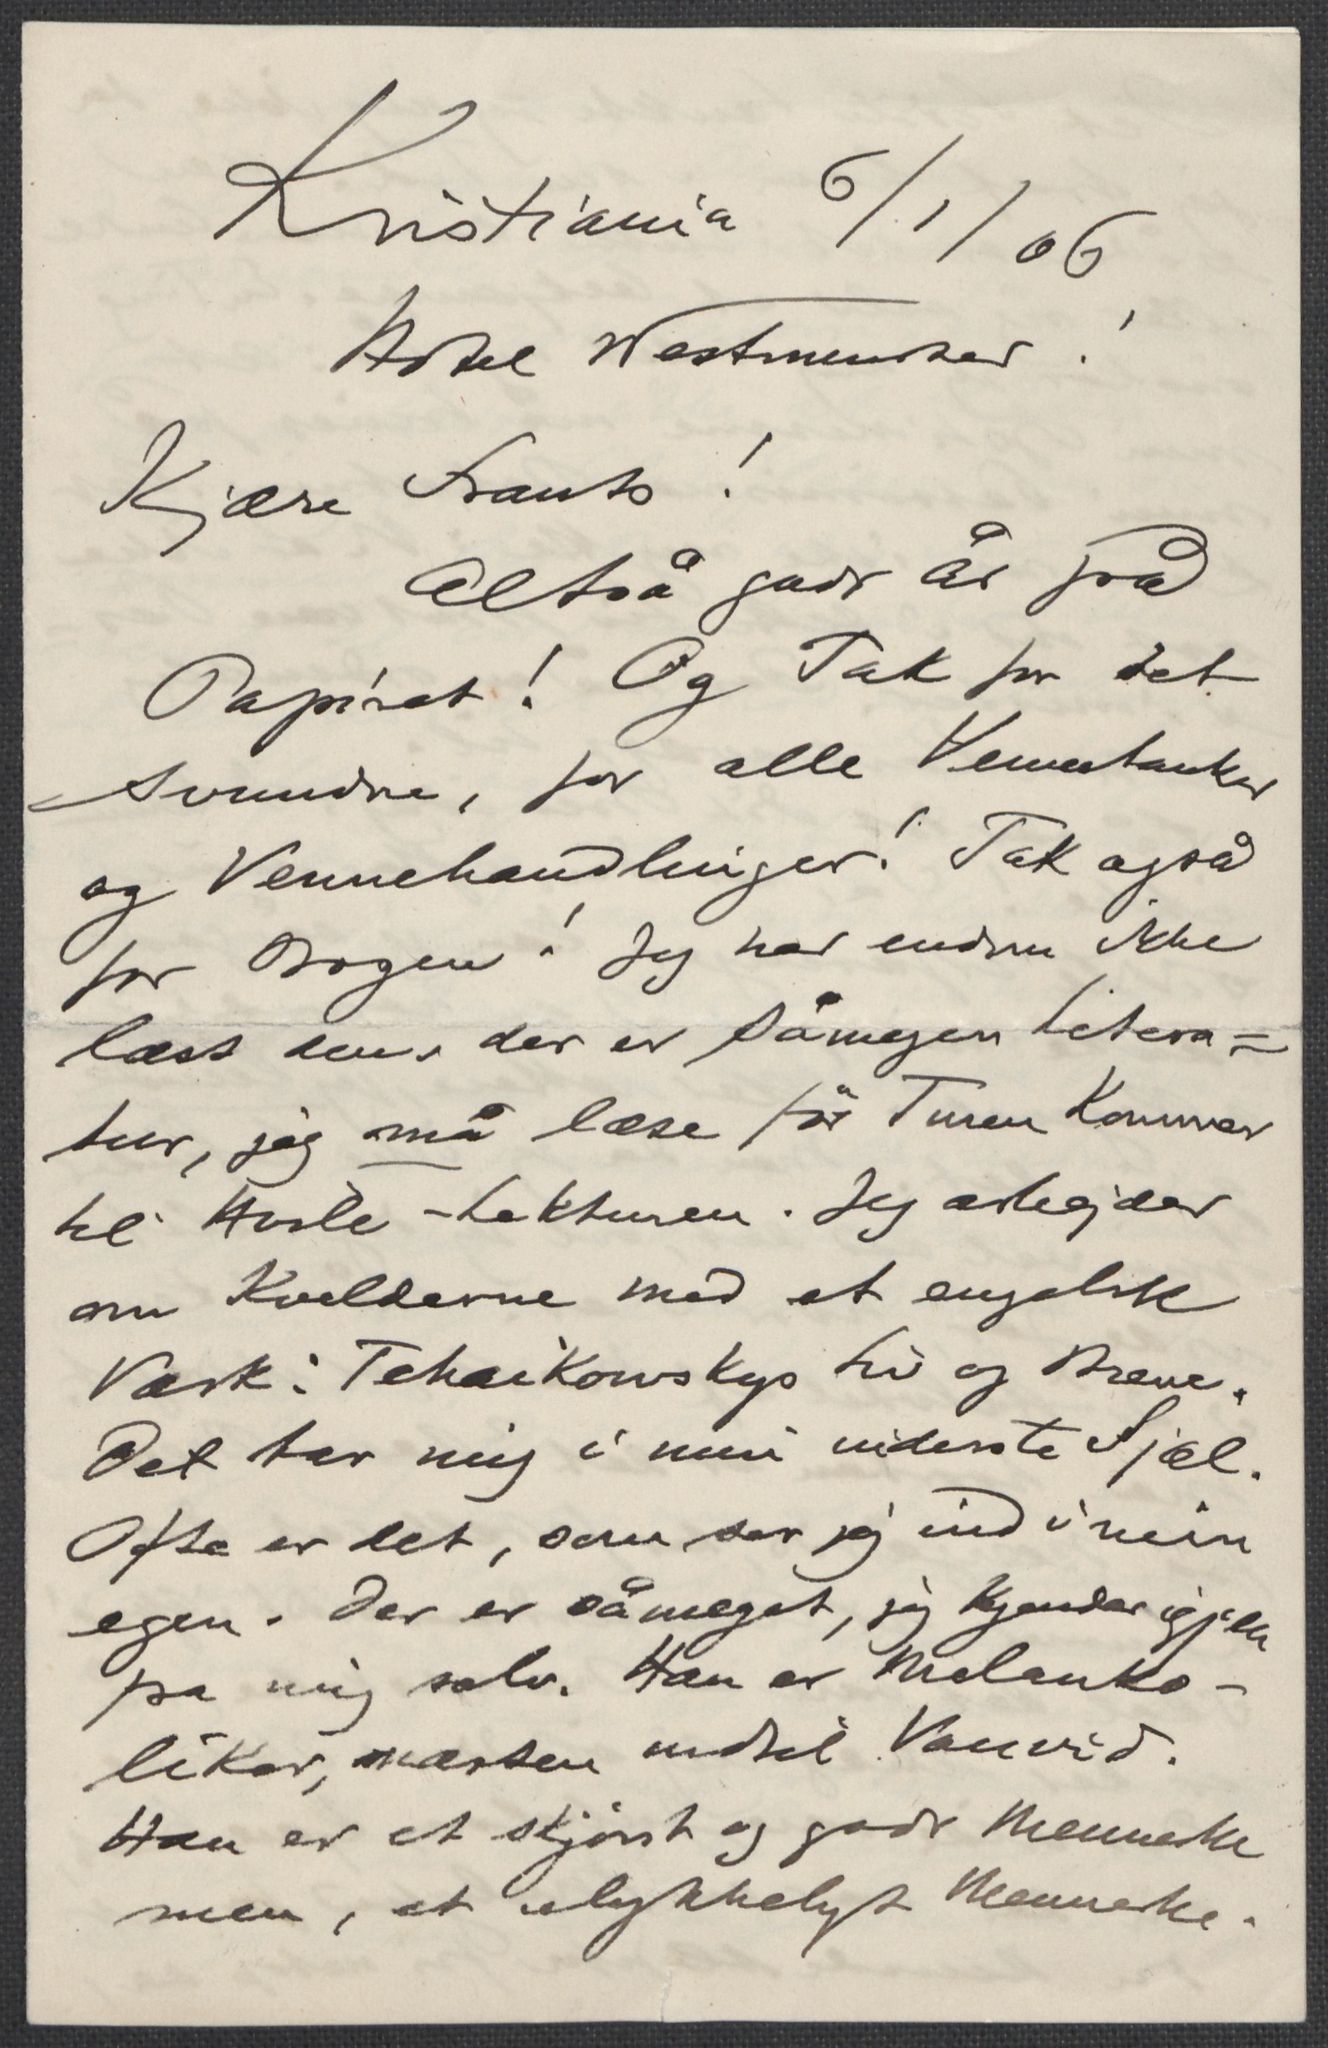 Kristiania 6/1/06
Hotel Westminster!
Kjære Frants!
Altså godt År på
Papiret! Og Tak for det
svundne, for alle Vennetanker
og Vennehandlinger! Tak også
for Bogen! Jeg har endnu ikke
læst den. der er såmegen Litera=
tur, jeg må læse før Turen kommer
til Hvile-Lekturen. Jeg arbejder
om Kvelderne med et engelsk
Værk: Tchaikowskys Liv og Breve.
Det tar mig i min inderste Sjæl.
Ofte er det, som ser jeg ind i min
egen. Der er såmeget, jeg kjender igjen
fra mig selv. Han er Melanko-
liker, næsten indtil Vanvid.
Han er et skjönt og godt Menneske
men, et ulykkeligt Menneske.